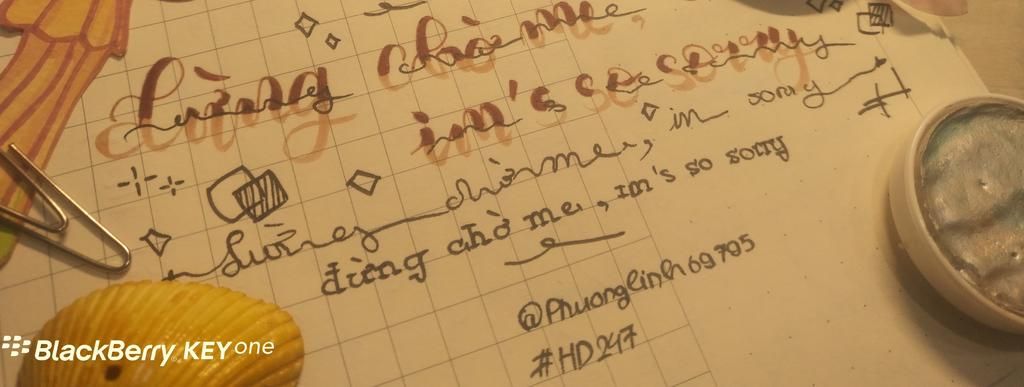 Đừng chờ me,
im's so sorry
Đừng chờ me, im sorry
đừng chờ me, im's so sorry
@Phuonglinh69705
#HD247
BlackBerry KEYone